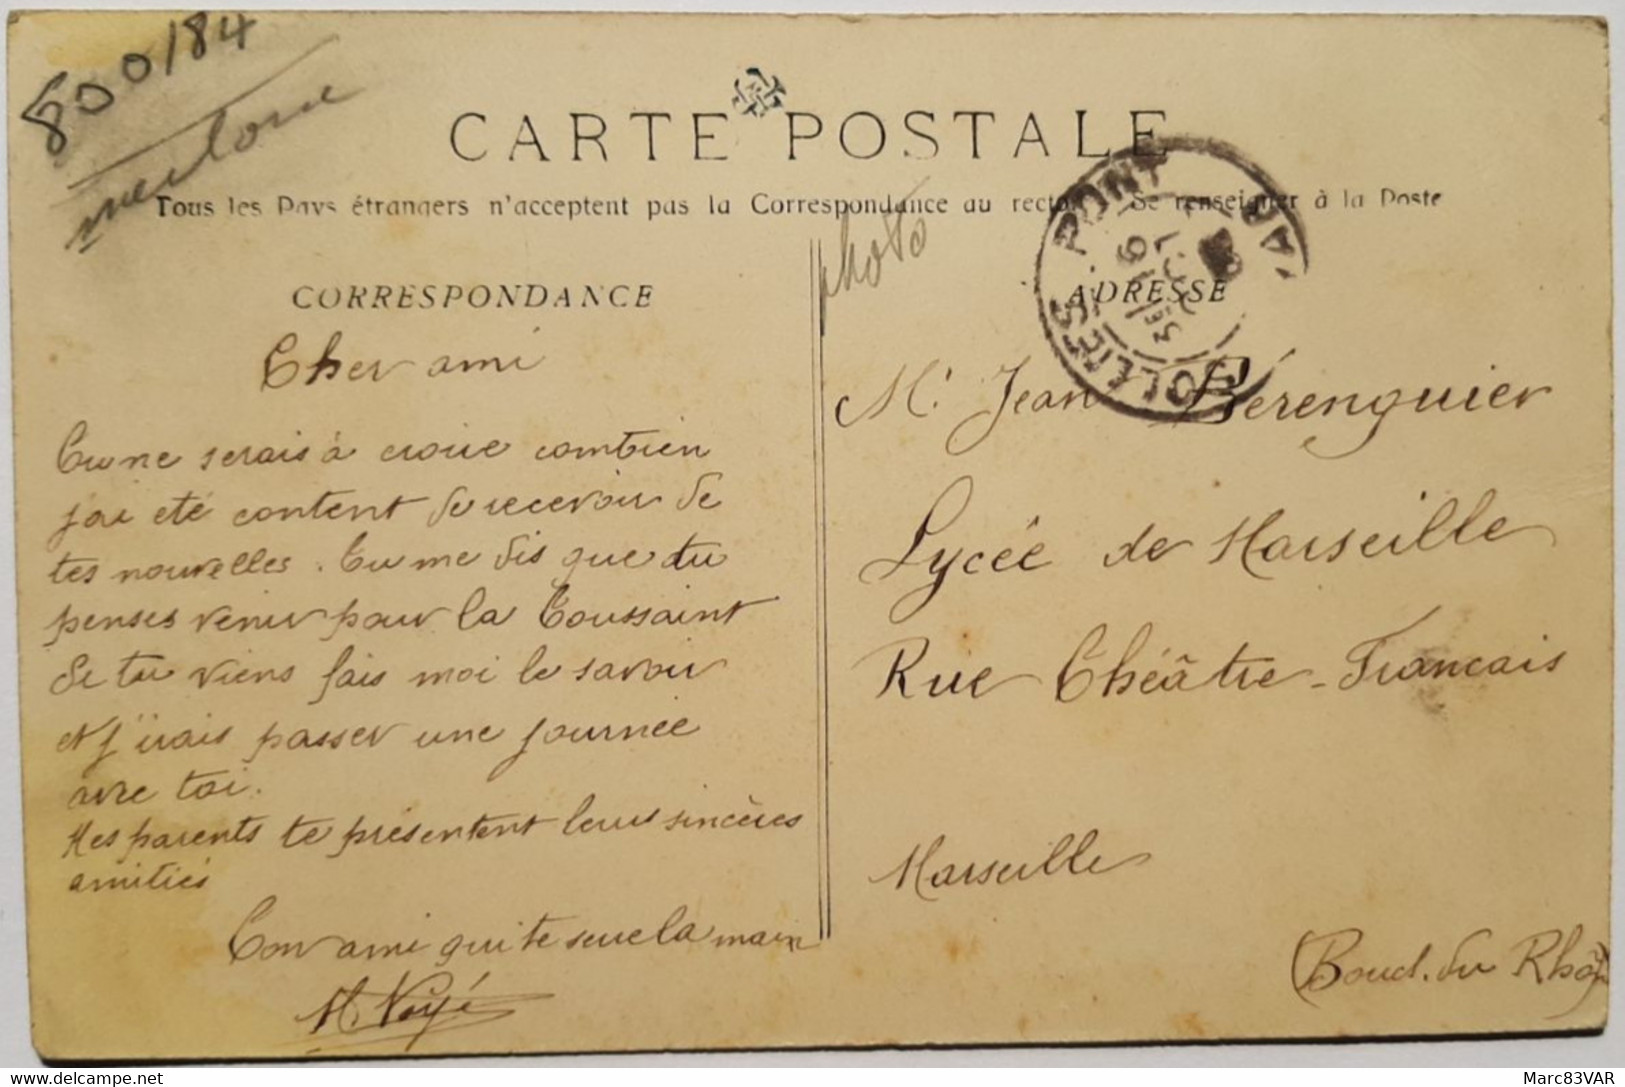 800/84
CARTE POSTALE
Tous les Pays étrangers n'acceptent pas la Correspondance au recto. Se renseigner à la Poste
photo
CORRESPONDANCE
Cher ami
Tu ne serais à croire combien
j'ai été content de recevoir de
tes nouvelles. Tu me dis que tu
penses venir pour la Toussaint
Si tu viens fais moi le savoir
et j'irais passer une journée
avec toi.
Mes parents te présentent leurs sincères
amitiés
Ton ami qui te serre la main
ADRESSE
SOLLIÈS-PONT
VAR
Mr. Jean Bérenguier
Lycée de Marseille
Rue Théâtre-Francais
Marseille
(Bouch. du Rhône)
Marc83VAR
delcampe.net